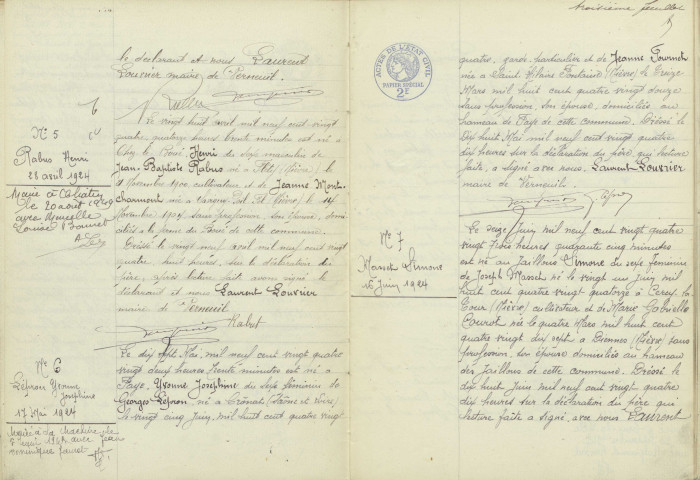 le déclarant et nous Laurent
Louvrier maire de Verneuil.
6
N° 5
Rabus Henri
28 avril 1924
Marié à Châtin
le 20 août 1949
avec
Le vingt huit avril mil neuf cent vingt
quatre, heures trente minutes est né
Henri du sexe masculin de
Jean-Baptiste Rabus né à (Nièvre) le
novembre 1900 cultivateur et de Jeanne Mont-
charmont née à (Nièvre) le
novembre 1904 sans profession, son épouse, domi-
ciliés à la de cette commune.
Dressé le vingt neuf avril mil neuf cent vingt
quatre, huit heures, sur la déclaration du
père, après lecture fait avons signé le
déclarant et nous Laurent Louvrier
maire de Verneuil
Rabus
N° 6
Lépron Yvonne
Joséphine
17 Mai 1924
Mariée à la Machine, le
avec Jean
Le dix sept Mai, mil neuf cent vingt quatre
vingt deux heures, trente minutes est né à
Faye, Yvonne Joséphine du sexe féminin de
Georges Lépron, né à Cronat (Saône et Loire)
le vingt cinq Juin, mil huit cent quatre vingt
troisième feuillet
ACTES DE L'ÉTAT CIVIL
PAPIER SPÉCIAL
2F
quatre, garde particulier et de Jeanne
née à Saint Hilaire Fontaine (Nièvre) le treize
Mars mil huit cent quatre vingt douze
sans profession, son épouse, domiciliés, au
hameau de Faye de cette commune. Dressé le
Dix huit Mai mil neuf cent vingt quatre
dix heures sur la déclaration du père, qui lecture
faite, a signé avec nous, Laurent Louvrier
maire de Verneuil
N° 7
Massel Simone
15 Juin 1924
Le seize Juin mil neuf cent vingt quatre
vingt trois heures quarante cinq minutes
est né au Jailloux Simone du sexe féminin
de Joseph Massel né le vingt un Juin mil
huit cent quatre vingt quatorze à Cercy la
Tour (Nièvre) cultivateur et de Marie Gabrielle
né le quatre Mars mil huit cent
quatre vingt dix sept à Biennes (Nièvre) sans
profession, son épouse domiciliés au hameau
des Jailloux de cette commune. Dressé le
dix huit Juin mil neuf cent vingt quatre
dix heures sur la déclaration du père qui
lecture faite a signé, avec nous Laurent